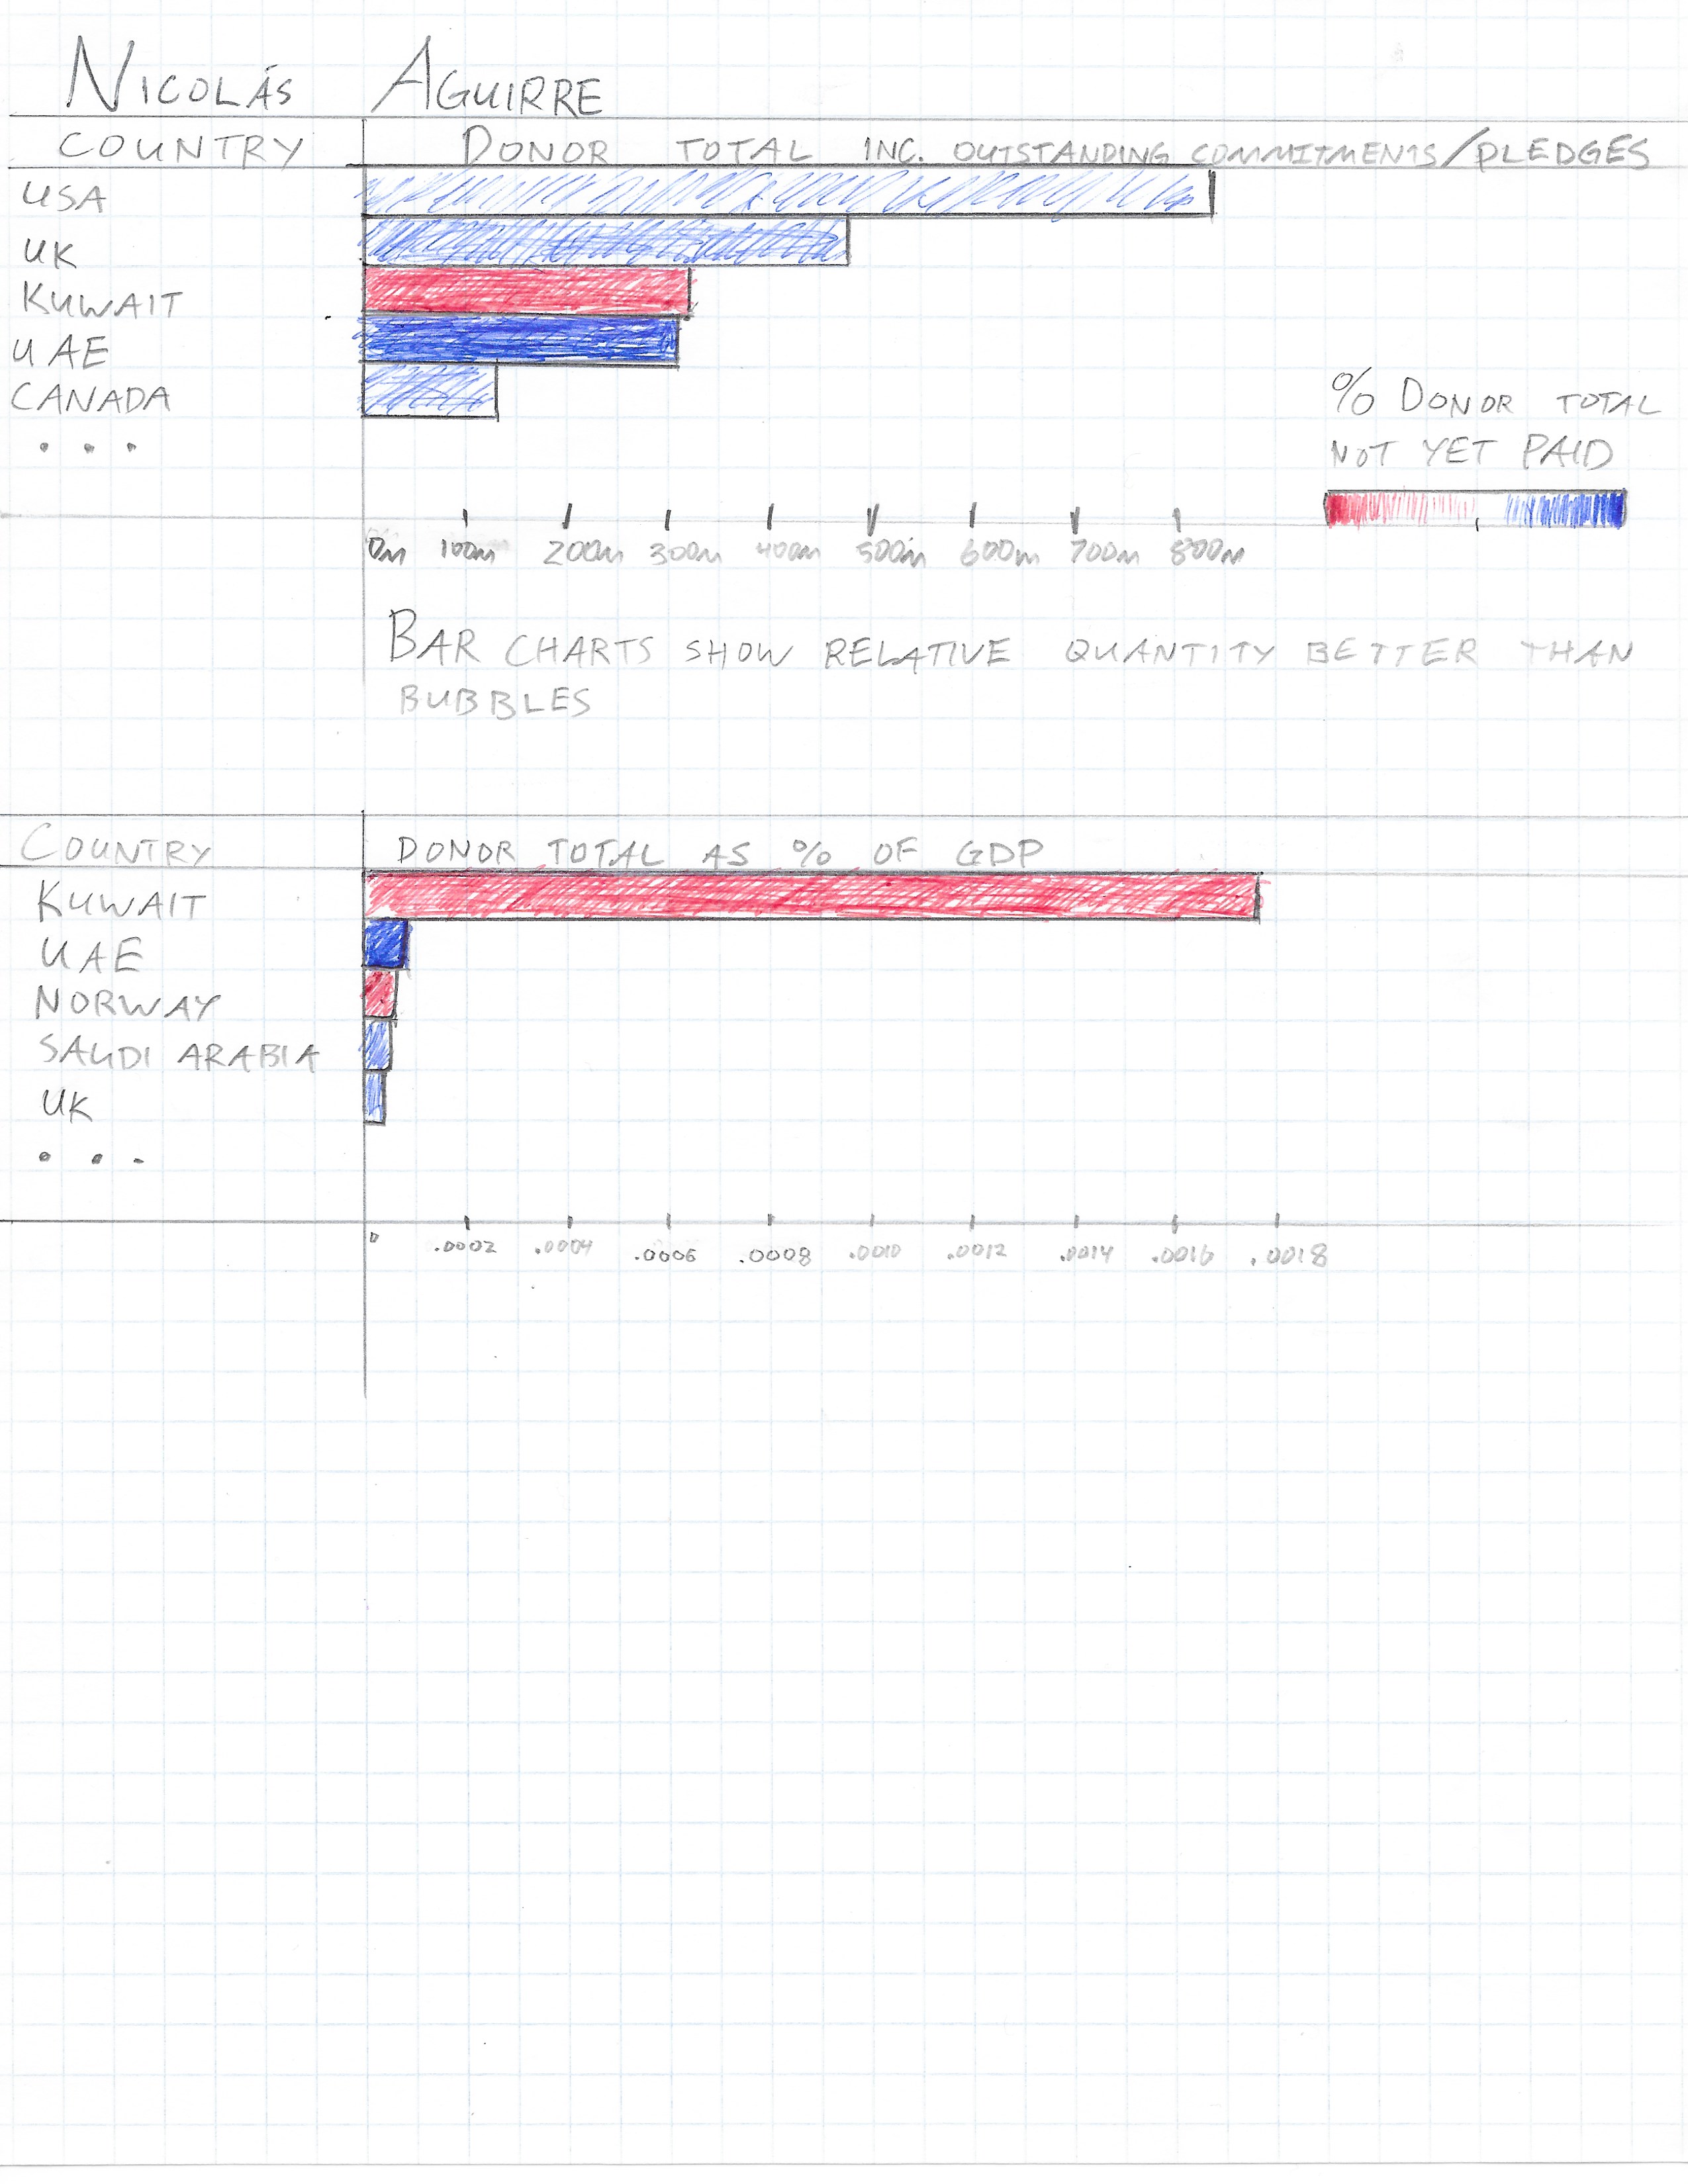 NICOLÁS AGUIRRE
COUNTRY DONOR TOTAL INC. OUTSTANDING COMMITMENTS/PLEDGES
USA
UK
KUWAIT
UAE
CANADA
...
% DONOR TOTAL
NOT YET PAID
0m 100m 200m 300m 400m 500m 600m 700m 800m
BAR CHARTS SHOW RELATIVE QUANTITY BETTER THAN
BUBBLES
COUNTRY DONOR TOTAL AS % OF GDP
KUWAIT
UAE
NORWAY
SAUDI ARABIA
UK
...
0 .0002 .0004 .0006 .0008 .0010 .0012 .0014 .0016 .0018